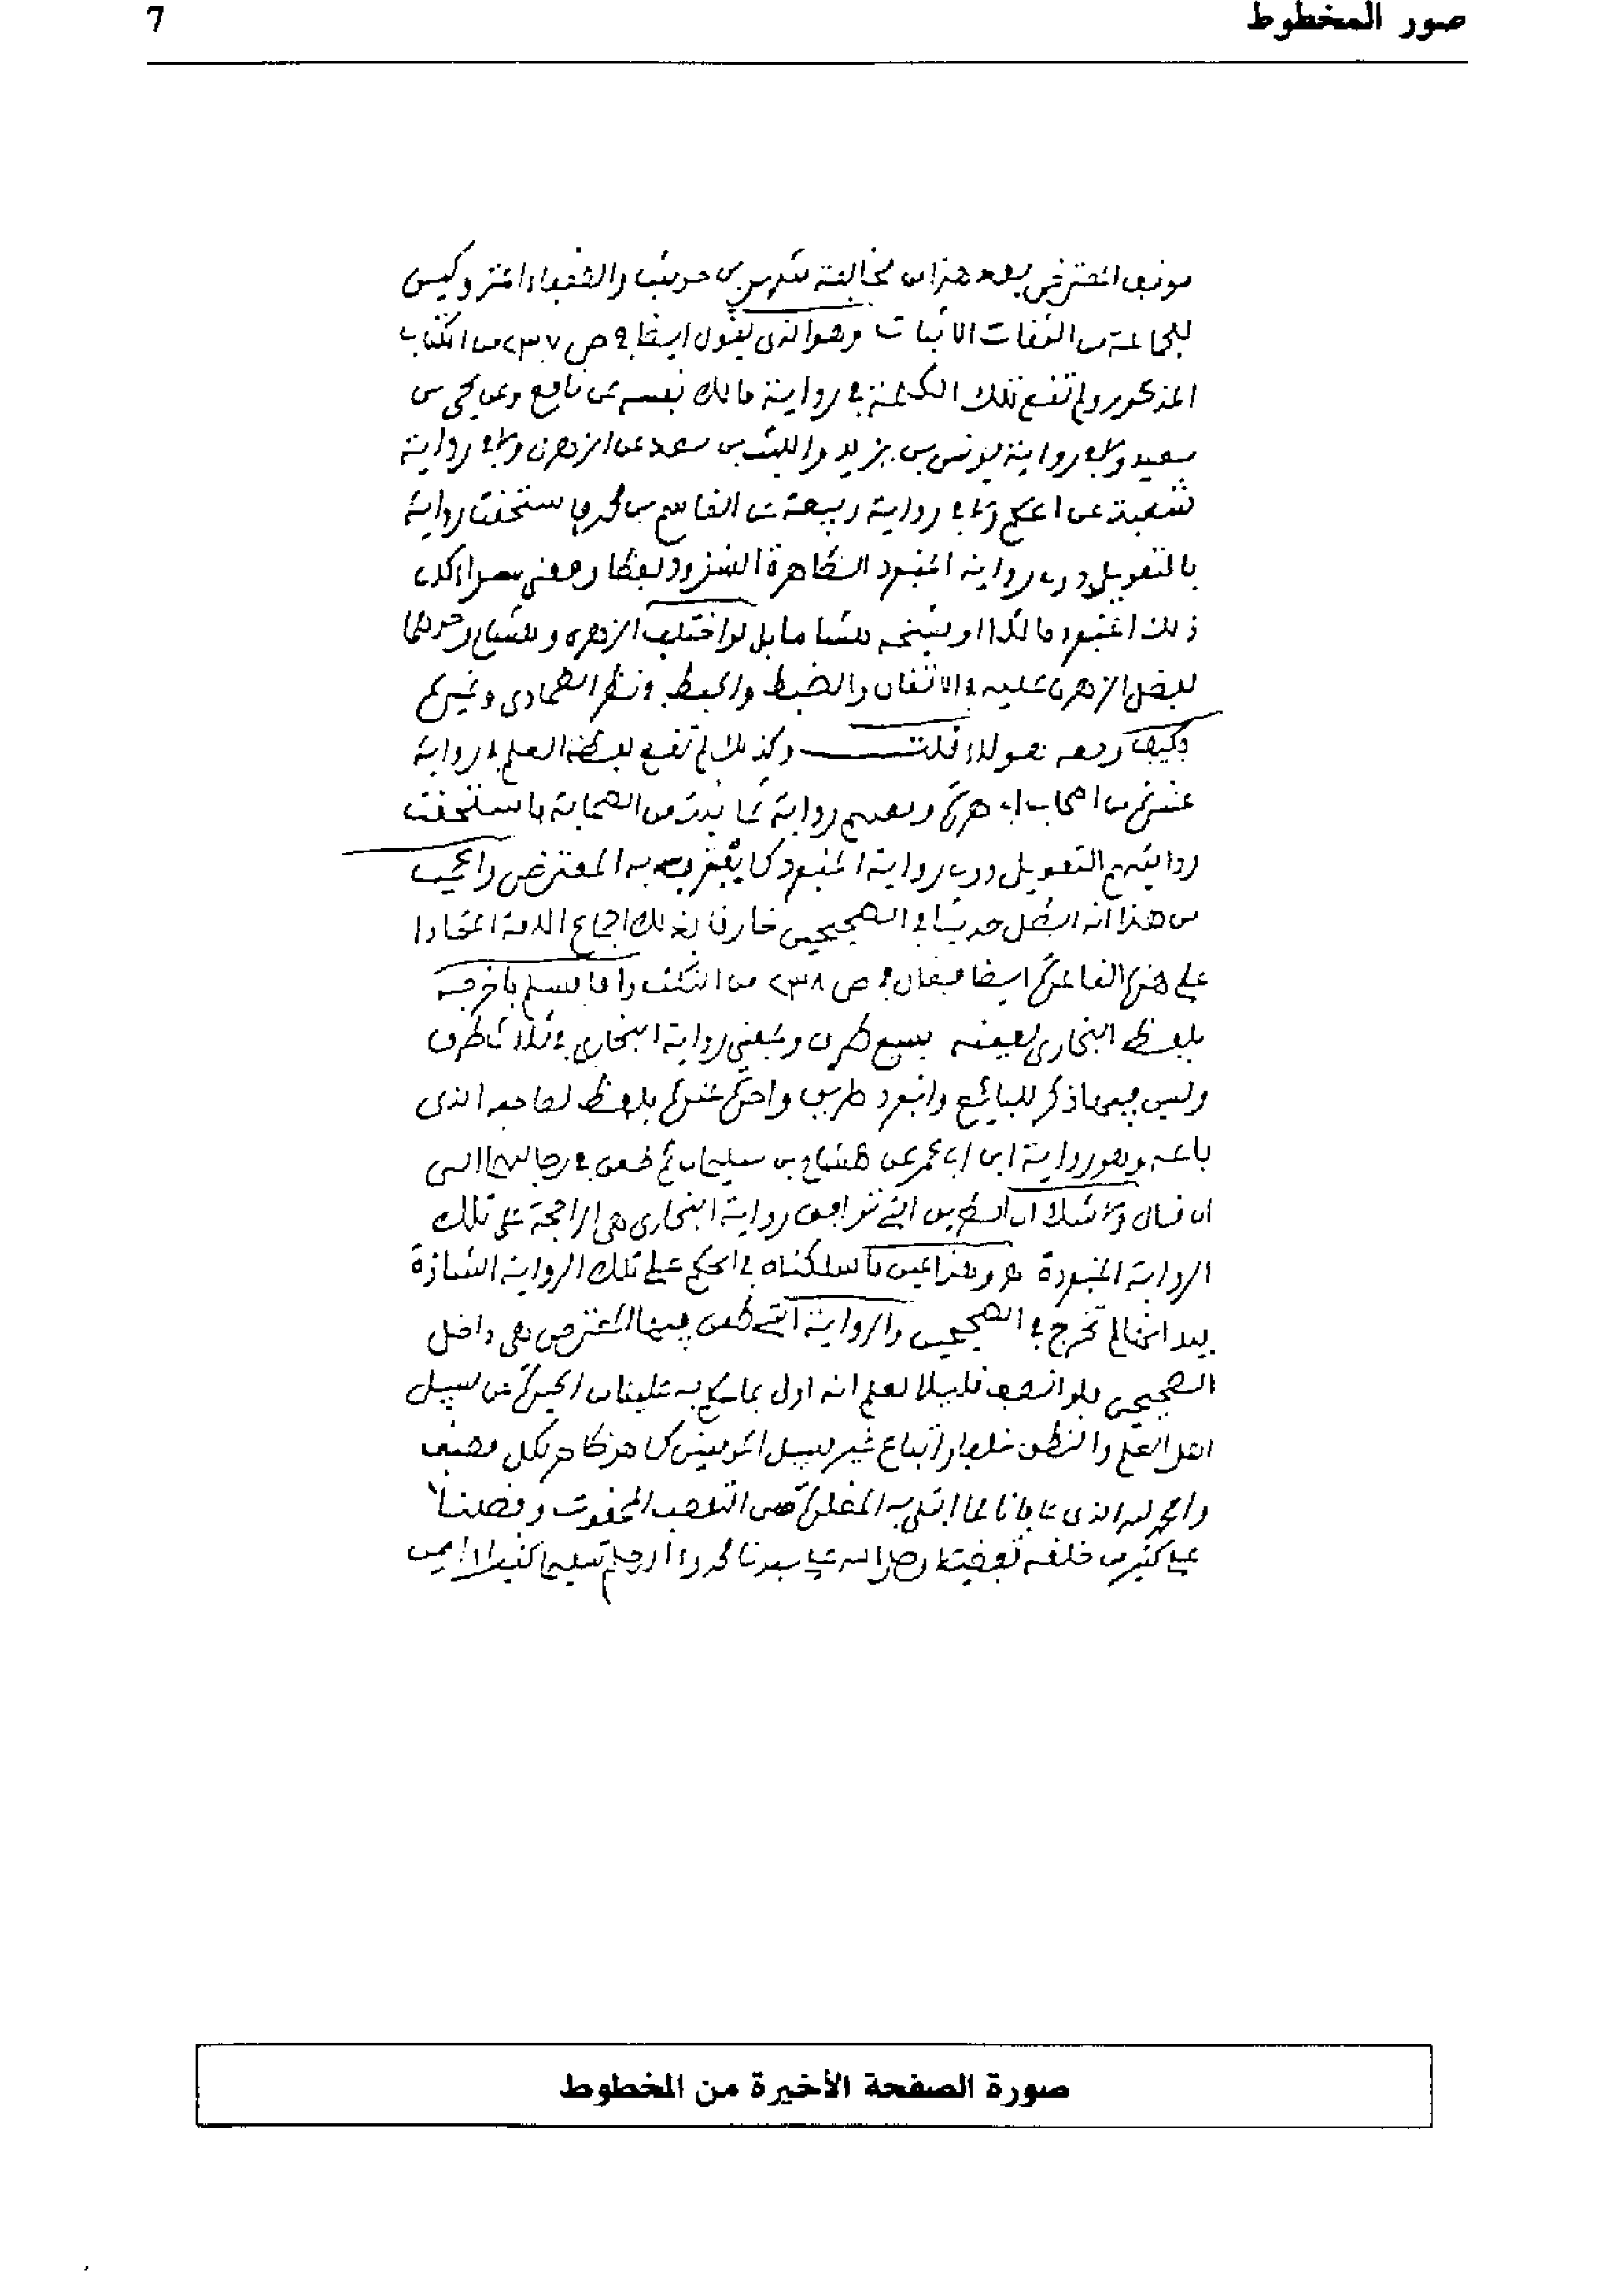 صور المخطوط
7
المعترض بعد هذا من مخالفة شهر بن حوشب والفقهاء المتروكين
للجماعة من الثقات الاثبات وهو الذي يقول ايضا في ص ٢٣٧ من الكتاب
المذكور ولم تقع تلك الكلمة في رواية مالك نفسه عن نافع وعن يحيى بن
سعيد ولا في رواية يونس بن يزيد والليث بن سعد عن الزهري ولا في رواية
شعبة عن الحكم ولا في رواية ربيعة عن القاسم بن محمد فاستحقت رواية
بالتعويل دون رواية
ذلك مالكا او هشاما بل لو اختلف الزهري وهشام
لفضل الزهري عليه في الاتقان والضبط والحفظ في نظر الطحاوي وغيره
فكيف وهؤلاء قلت وكذلك لم تقع لفظة العلم في رواية
عشرة من اصحاب ابي هريرة ومعهم رواية ثمانية من الصحابة فاستحقت
روايتهم التعويل دون رواية كما به المعترض والعجيب
من هذا انه ابطل حديثا في الصحيحين خارقا بذلك اجماع الامة اعتمادا
على هذه القاعدة ايضا فقال في ص ٢٣٨ من النكت واما مسلم فاخرجه
بلفظ البخاري بعينه بسبع طرق ويعني رواية البخاري في ثلاث طرق
وليس فيها ذكر للبائع وانفرد طريق واحد عنده بلفظ لصاحبه الذي
باعه وهو رواية ابن ابي عمر عن هشام بن سليمان ثم طعن في رجالها الى
ان قال ولا شك ان الطريق التي توافق رواية البخاري هي الراجحة على تلك
الرواية وهذا عين ما سلكناه في الحكم على تلك الرواية الشاذة
بيد انها لم تخرج في الصحيحين والرواية التي طعن فيها المعترض هي داخل
الصحيحين فلو انصف قليلا لعلم انه اولى بما حكم به علينا من الحيدة عن سبيل
اهل العلم والنظر واتباع غير سبيل المؤمنين كما هو ظاهر لكل منصف
والحمد لله الذي عافانا مما ابتلى به المقلدة من التعصب الممقوت وفضلنا
على كثير من خلقه تفضيلا وصلى الله على سيدنا محمد واله وسلم تسليما كثيرا امين
صورة الصفحة الأخيرة من المخطوط